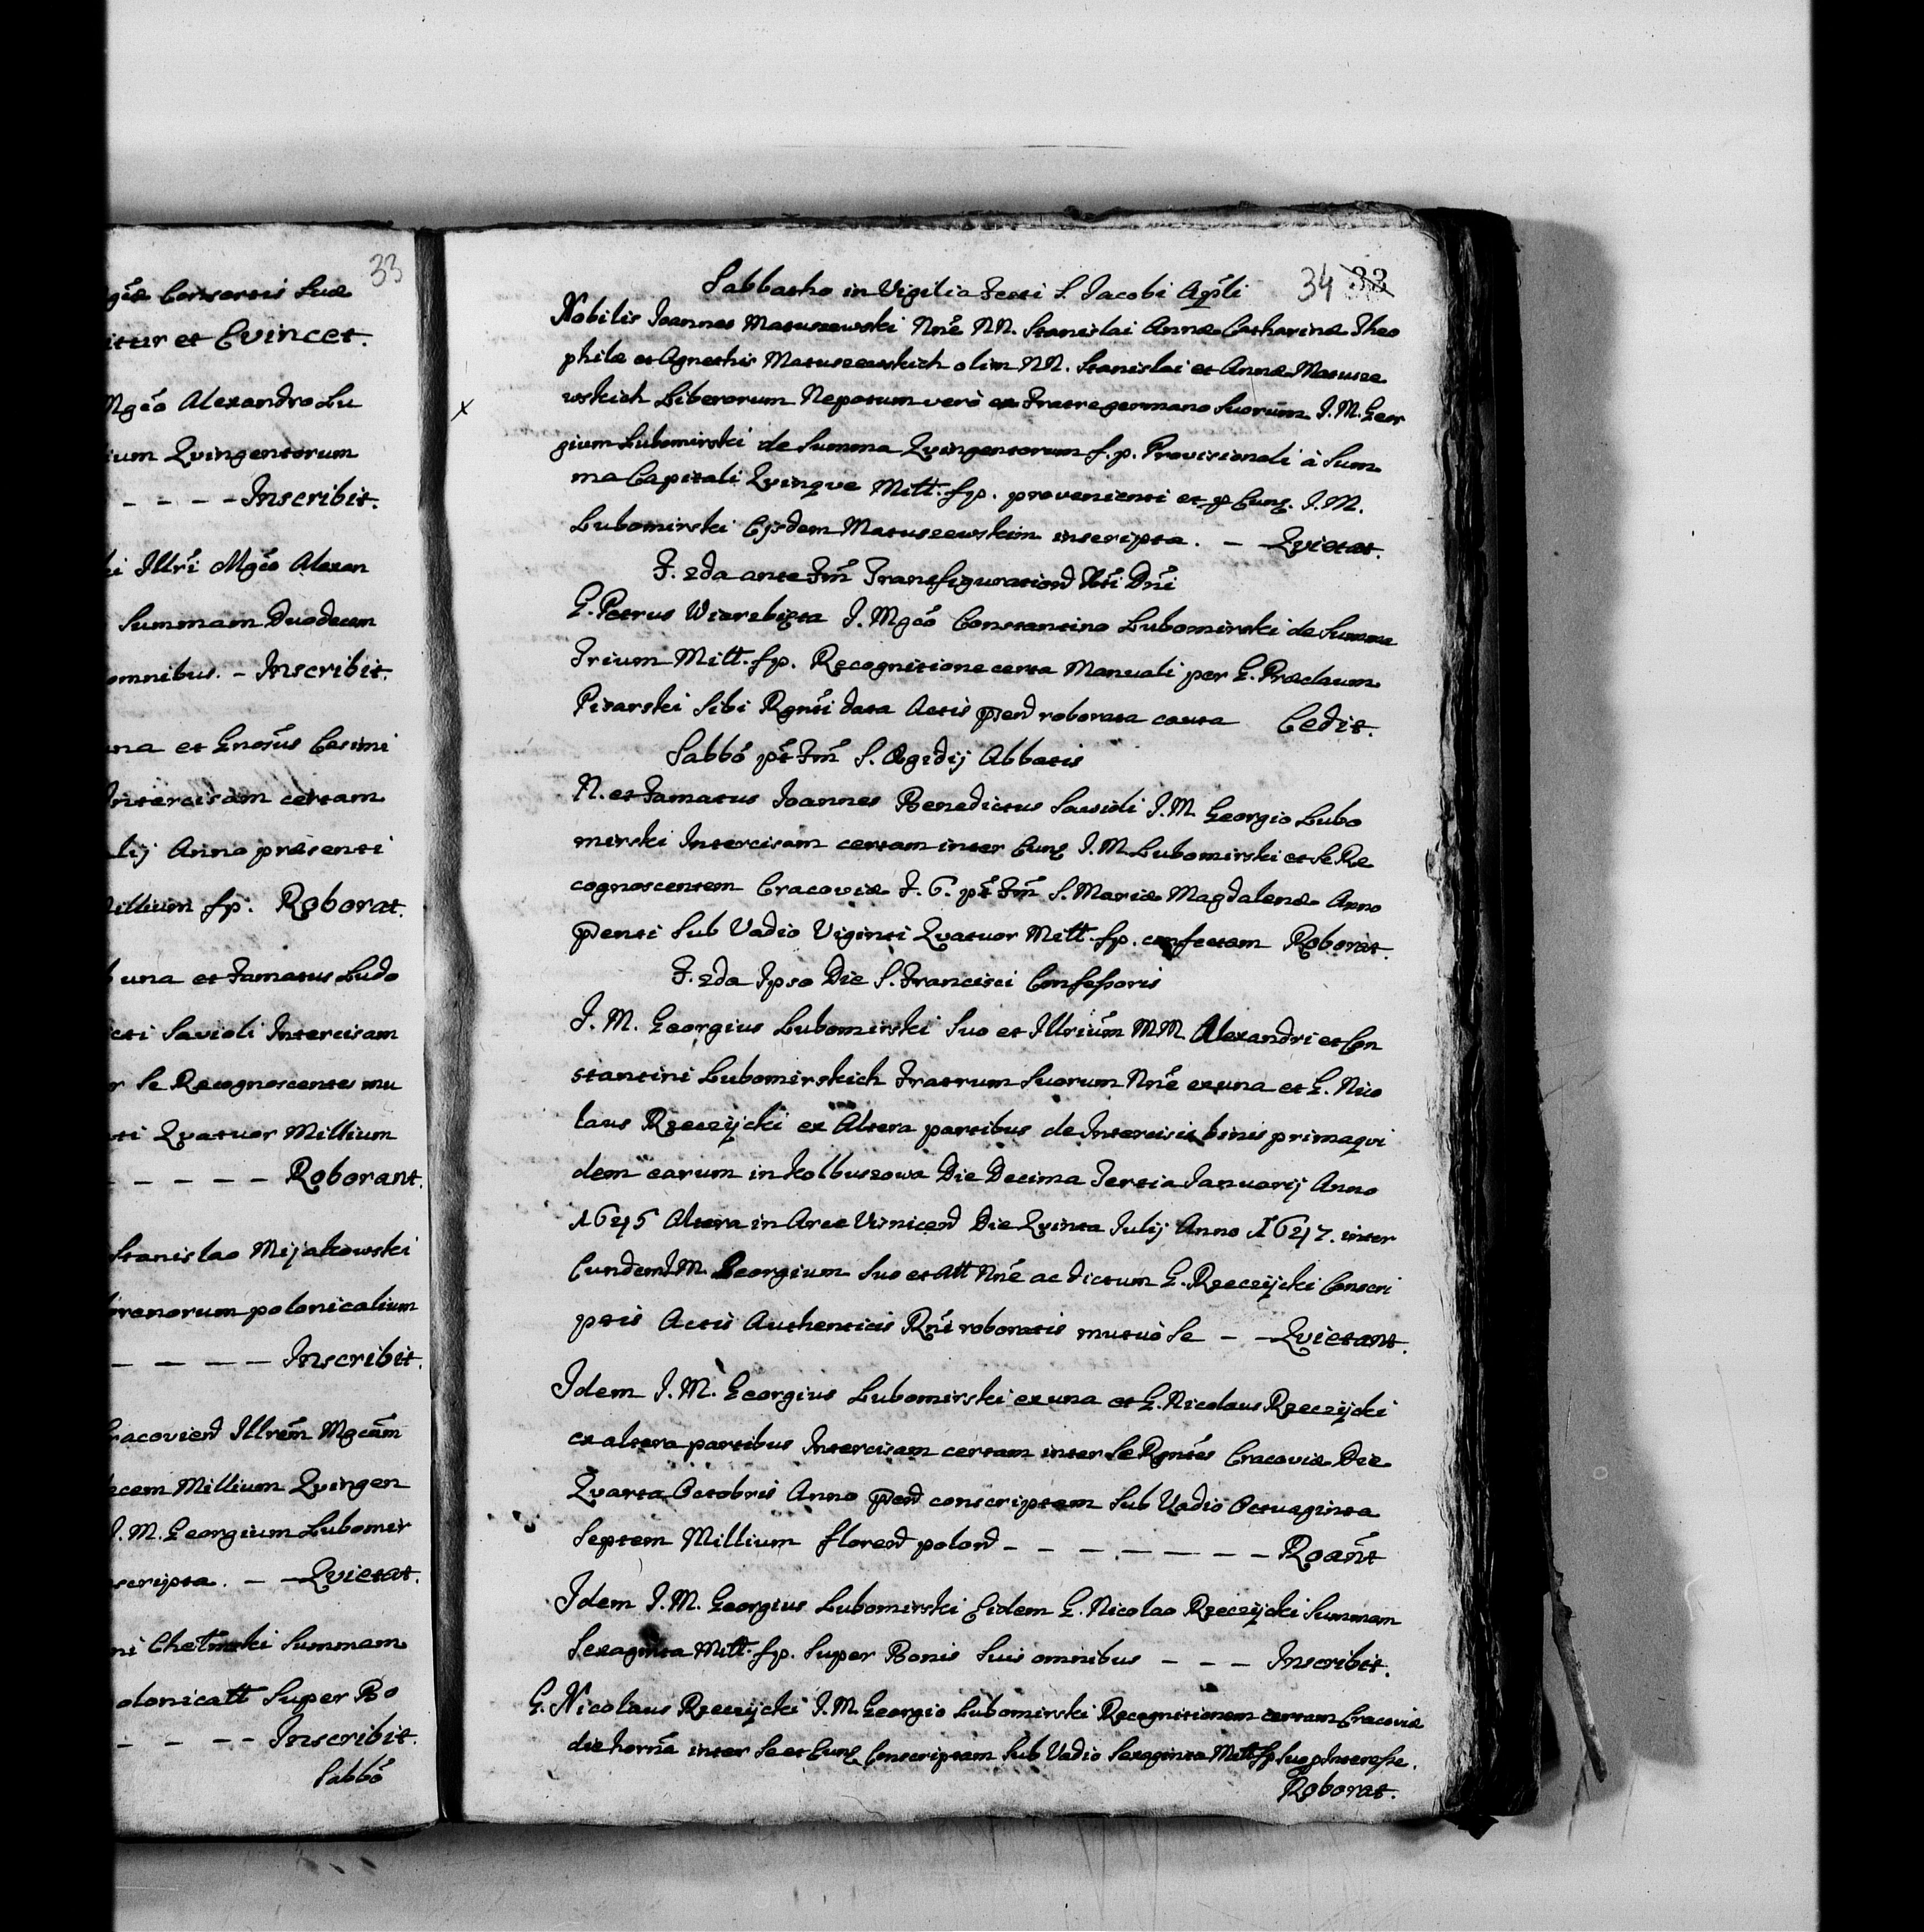 33
giæ Consortis Suæ
itur et Evincet.
Mgco Alexandro Lu
ium Qvingentorum
- - - - Inscribit.
ki Illri Mgco Alexan
Summam Duodecim
omnibus. - Inscribit.
una et Gnosus Cesimi
Intercisam certam
lij Anno præsenti
Millium fp. Roborat.
una et Famatus Ludo
icti Savioli Intercisam
r Se Recognoscentes mu
nti Qvatuor Millium
- - - - - Roborant.
Stanislao Mijakowski
orenorum polonicalium
- - - - Inscribit.
Cracovien Illrem Mgcum
ecem Millium Qvingen
J. M. Georgium Lubomir
scripta. - - Qvietat.
ni Chełmski Summam
olonicall Super Bo
- - - - Inscribit.
Sabbo
34 33
Sabbatho in Vigilia Festi S. Jacobi Apli
Nobilis Joannes Matuszewski Nne NN. Stanislai Annæ Catharinæ Theo
philæ et Agnethis Matuszewskich olim NN. Stanislai et Annæ Matusze
x wskich Liberorum Nepotum verò ex Fratre germano Suorum J. M. Geor
gium Lubomirski de Summa Qvingentorum f. p. Provisionali à Sum
ma Capitali Qvinqve Mill. fp. provenienti et p Eunq. J. M.
Lubomirski Ejsdem Matuszewskim inscripta. - Qvietat.
F. 2da ante Fm Transfigurationis Xti Dni
G. Petrus Wierzbięta J. Mgco Constantino Lubomirski de Summa
Trium Mill. fp. Recognitione certa Manuali per G. Præclaum
Pisarski Sibi Rgnti data Actis pend roborata cauta Cedit.
Sabbo pt Fm S. Ægidij Abbatis
N. et Famatus Joannes Benedictus Savioli J. M. Georgio Lubo
mirski Intercisam certam inter Eunq J. M. Lubomirski et Se Re
cognoscentem Cracoviæ F. 6. pt Fm S. Mariæ Magdalenæ Anno
penti Sub Vadio Viginti Qvatuor Mill. fp. confectam Roborat.
F. 2da Ipso Die S. Francisci Confessoris
J. M. Georgius Lubomirski Suo et Illrium MM. Alexandri et Con
stantini Lubomirskich Fratrum Suorum Nne ex una et G. Nico
laus Rzeczÿcki ex Altera partibus de Intercisis binis prima qvi
dem earum in Kolbuszowa Die Decima Tertia Januarij Anno
1645 Altera in Arce Visnicen Die Qvinta Julij Anno 1647. inter
Eundem J M. Georgium Suo et All Nne ac dictum G. Rzeczÿcki Conscri
ptis Actis Authenticis Rne roboratis mutuò Se - - Qvietant.
Idem J. M. Georgius Lubomirski ex una et G. Nicolaus Rzeczÿcki
ex altera partibus Intercisam certam inter Se Rgntes Cracoviæ Die
Qvarta Octobris Anno pen conscriptam Sub Vadio Octuaginta
Septem Millium floren polon - - - - - - - Roant
Idem J. M. Georgius Lubomirski Eidem G. Nicolao Rzeczÿcki Summam
Sexaginta Mill. fp. Super Bonis Suis omnibus - - - Inscribit.
G. Nicolaus Rzeczÿcki J. M. Georgio Lubomirski Recognitionem certam Cracoviæ
die horna inter Se et Eunq Conscriptam Sub Vadio Sexaginta Mill fp Suo p Interesse.
Roborat.